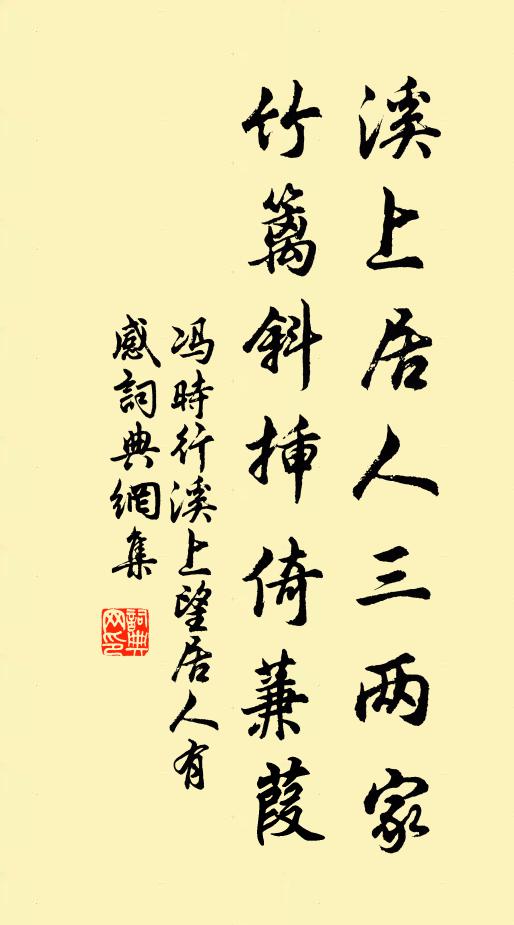 溪上居人三两家
竹篱斜插倚蒹葭
冯時行溪上望居人有
感詞典網集
詞典
网印